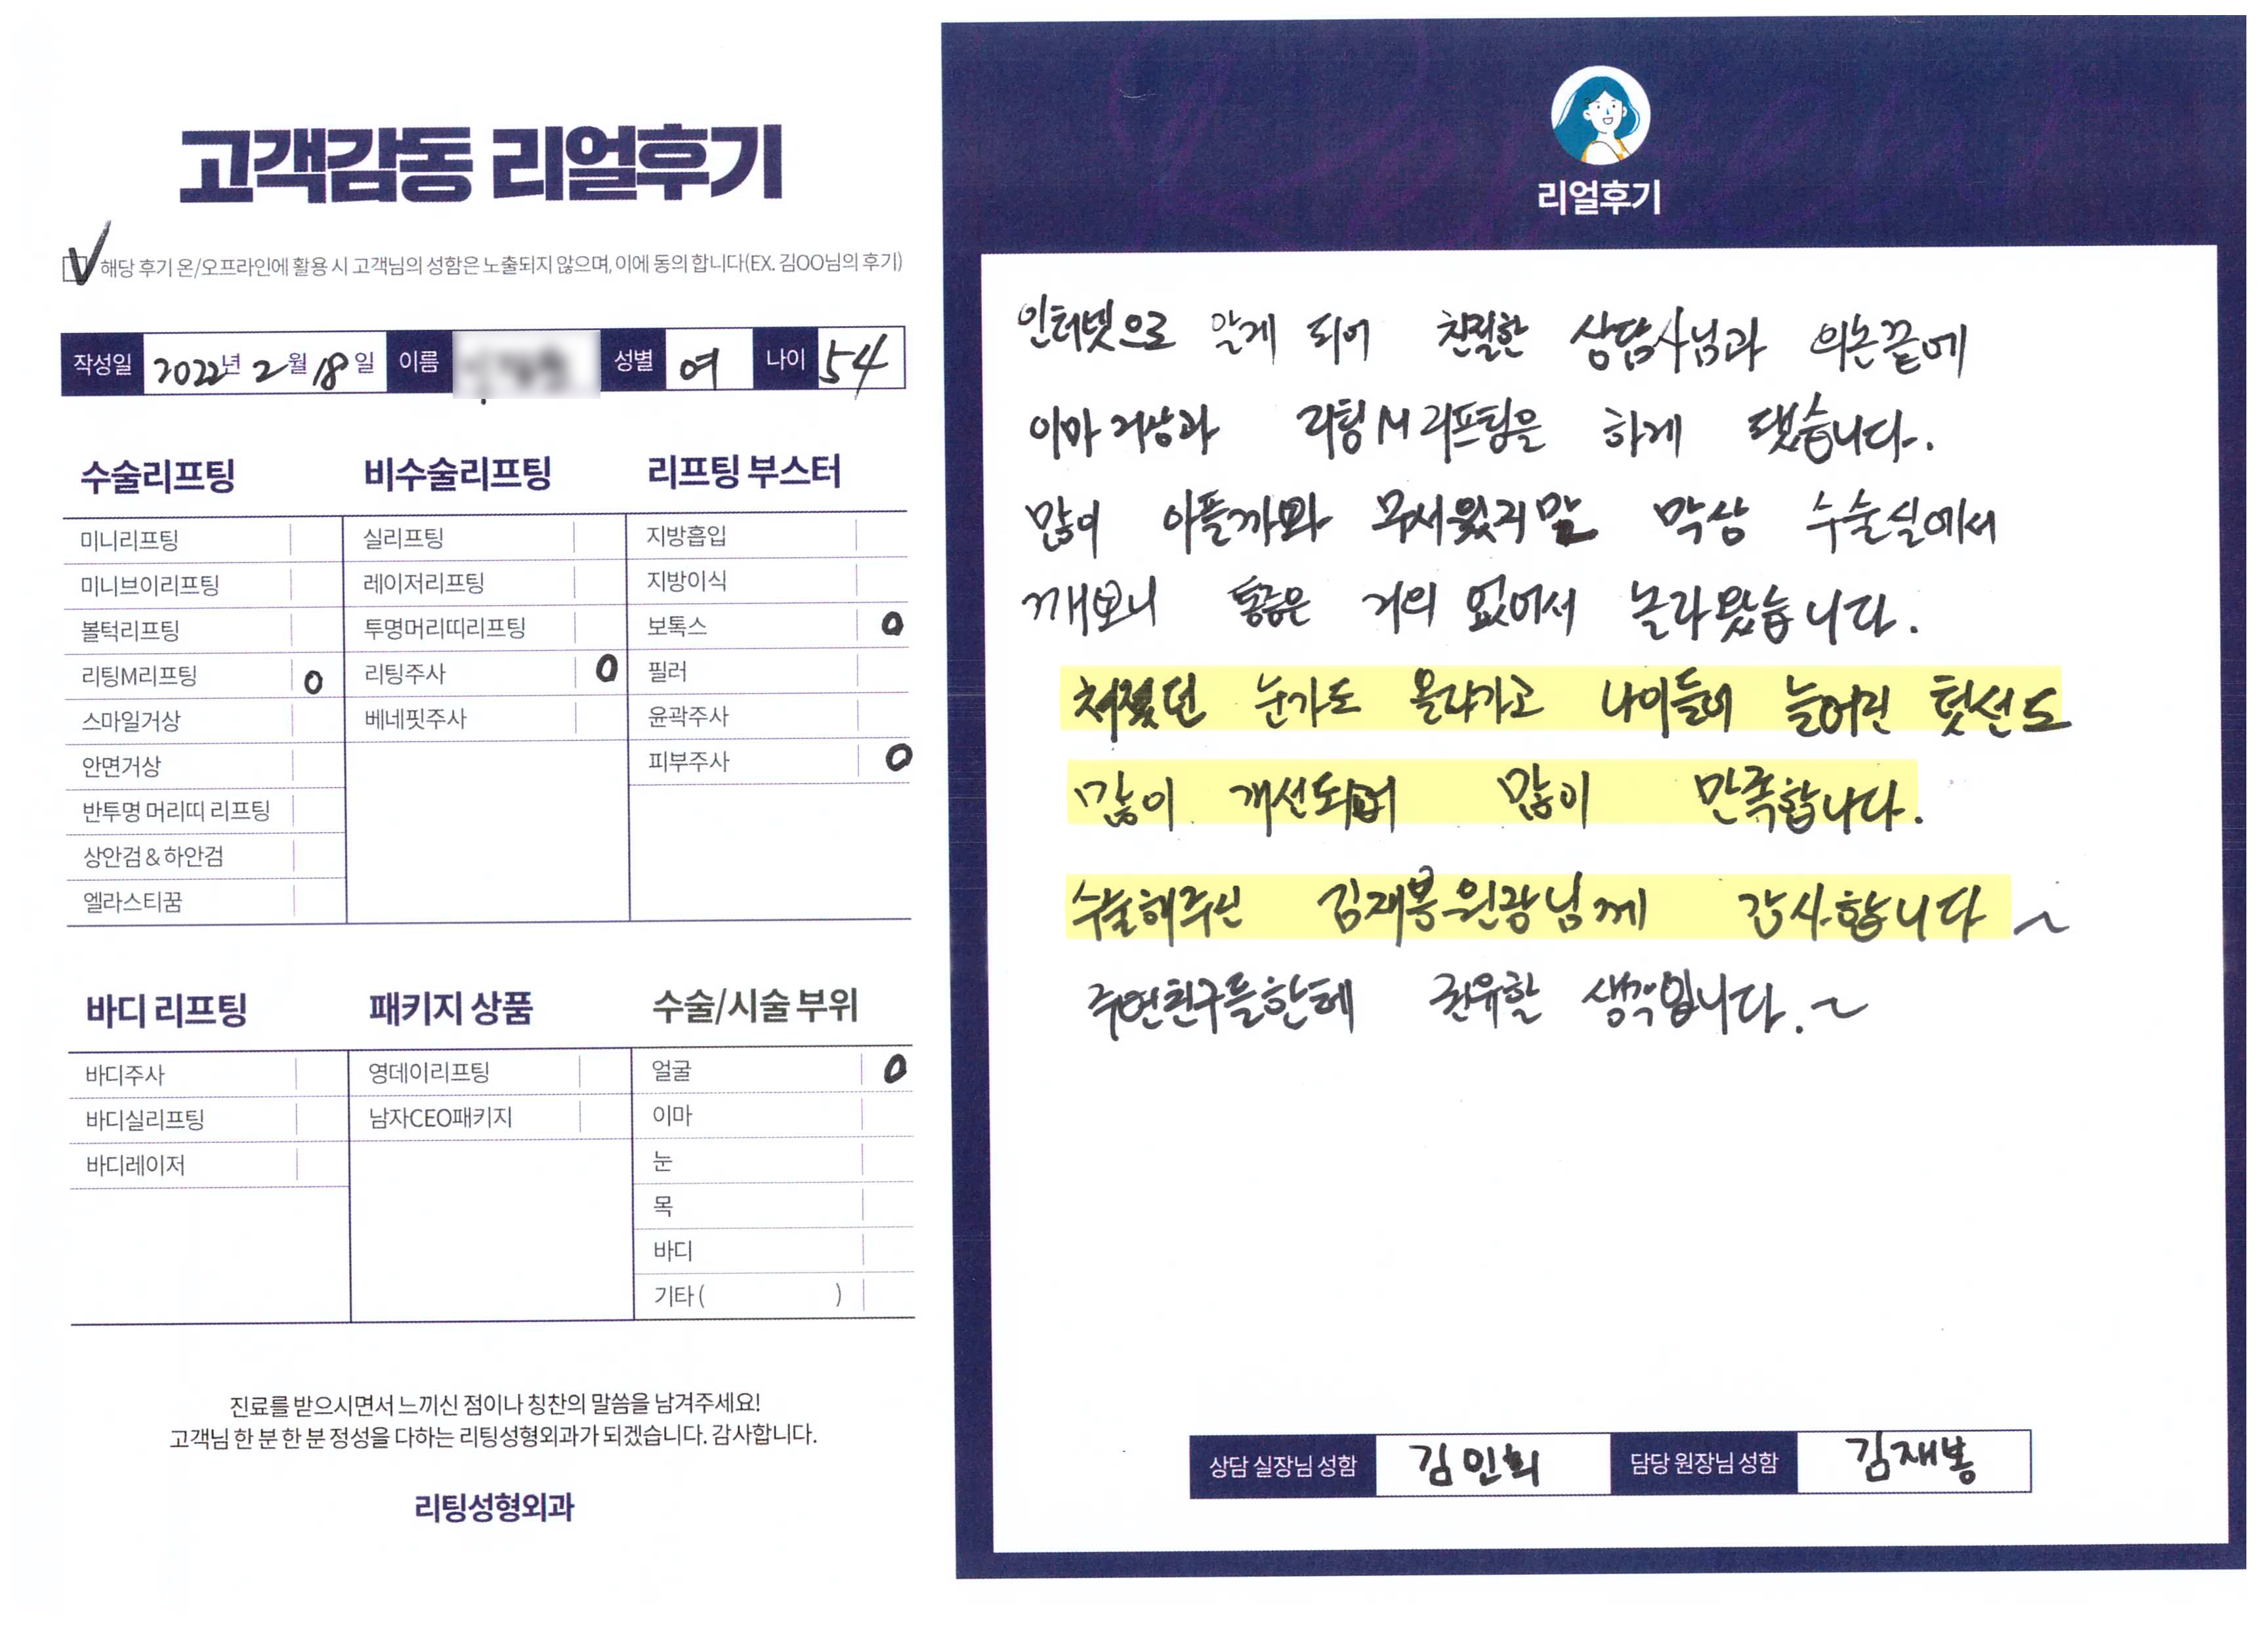 고객감동 리얼후기
해당 후기 온/오프라인에 활용 시 고객님의 성함은 노출되지 않으며, 이에 동의 합니다(EX. 김OO님의 후기)
작성일 2022년 2월 18일 이름 성별 여 나이 54
수술리프팅
미니리프팅
미니브이리프팅
볼턱리프팅
리팅M리프팅 O
스마일거상
안면거상
반투명 머리띠 리프팅
상안검 & 하안검
엘라스티꿈
비수술리프팅
실리프팅
레이저리프팅
투명머리띠리프팅
리팅주사 O
베네핏주사
리프팅 부스터
지방흡입
지방이식
보톡스 O
필러
윤곽주사
피부주사 O
바디 리프팅
바디주사
바디실리프팅
바디레이저
패키지 상품
영데이리프팅
남자CEO패키지
수술/시술 부위
얼굴 O
이마
눈
목
바디
기타 ( )
진료를 받으시면서 느끼신 점이나 칭찬의 말씀을 남겨주세요!
고객님 한 분 한 분 정성을 다하는 리팅성형외과가 되겠습니다. 감사합니다.
리팅성형외과
리얼후기
인터넷으로 알게 되어 친절한 상담사님과 의논끝에
이마거상과 리팅M리프팅을 하게 됐습니다.
많이 아플까봐 무서웠지만 막상 수술실에서
깨보니 통증은 거의 없어서 놀라왔습니다.
처졌던 눈가도 올라가고 나이들어 늘어진 턱선도
많이 개선되어 많이 만족합니다.
수술해주신 김재봉원장님께 감사합니다~
주변친구들한테 권유할 생각입니다.~
상담 실장님 성함 김민희 담당 원장님 성함 김재봉